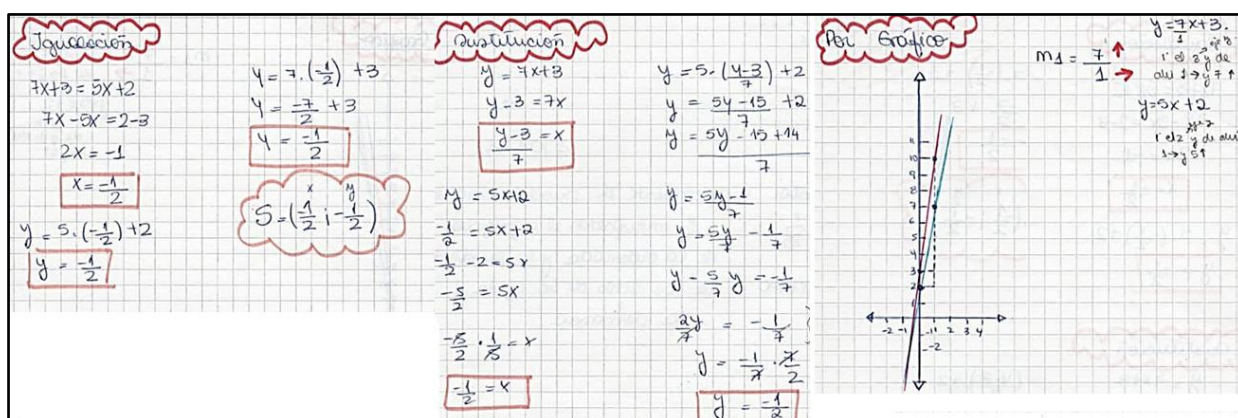 Igualación
7x+3 = 5x+2
7x-5x = 2-3
2x = -1
x = -1/2
y = 5.(-1/2)+2
y = -1/2
y = 7.(-1/2) + 3
y = -7/2 + 3
y = -1/2
x y
S = (-1/2 ; -1/2)
Sustitución
y = 7x+3
y-3 = 7x
y-3/7 = x
y = 5x+2
-1/2 = 5x+2
-1/2 - 2 = 5x
-5/2 = 5x
-5/2 . 1/5 = x
-1/2 = x
y = 5.(y-3/7) + 2
y = 5y-15/7 + 2
y = 5y-15+14/7
y = 5y-1/7
y = 5y/7 - 1/7
y - 5/7 y = -1/7
2y/7 = -1/7
y = -1/7 . 7/2
y = -1/2
Por Gráfico
m1 = 7/1
y = 7x+3.
1
y = 5x+2
10
9
8
7
6
5
4
3
2
1
-2 -1 1 2 3 4
-2